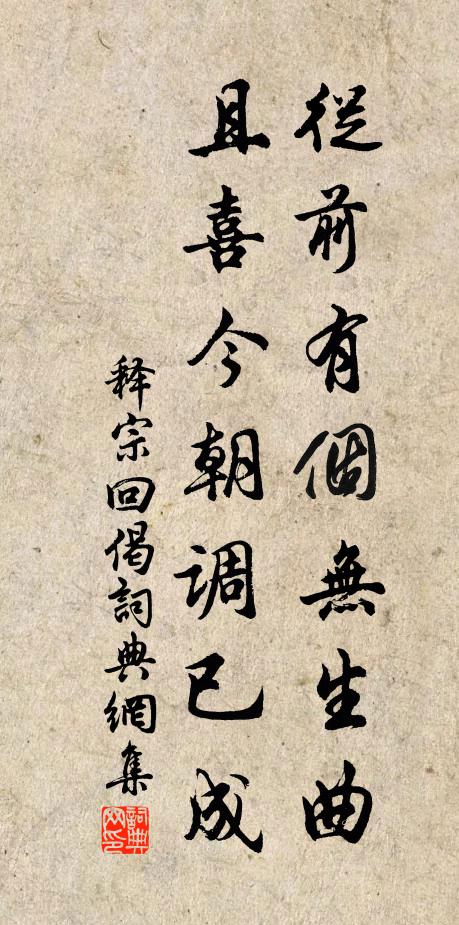 從前有個無生曲
且喜今朝调已成
释宗回偈詞典網集
詞典网印